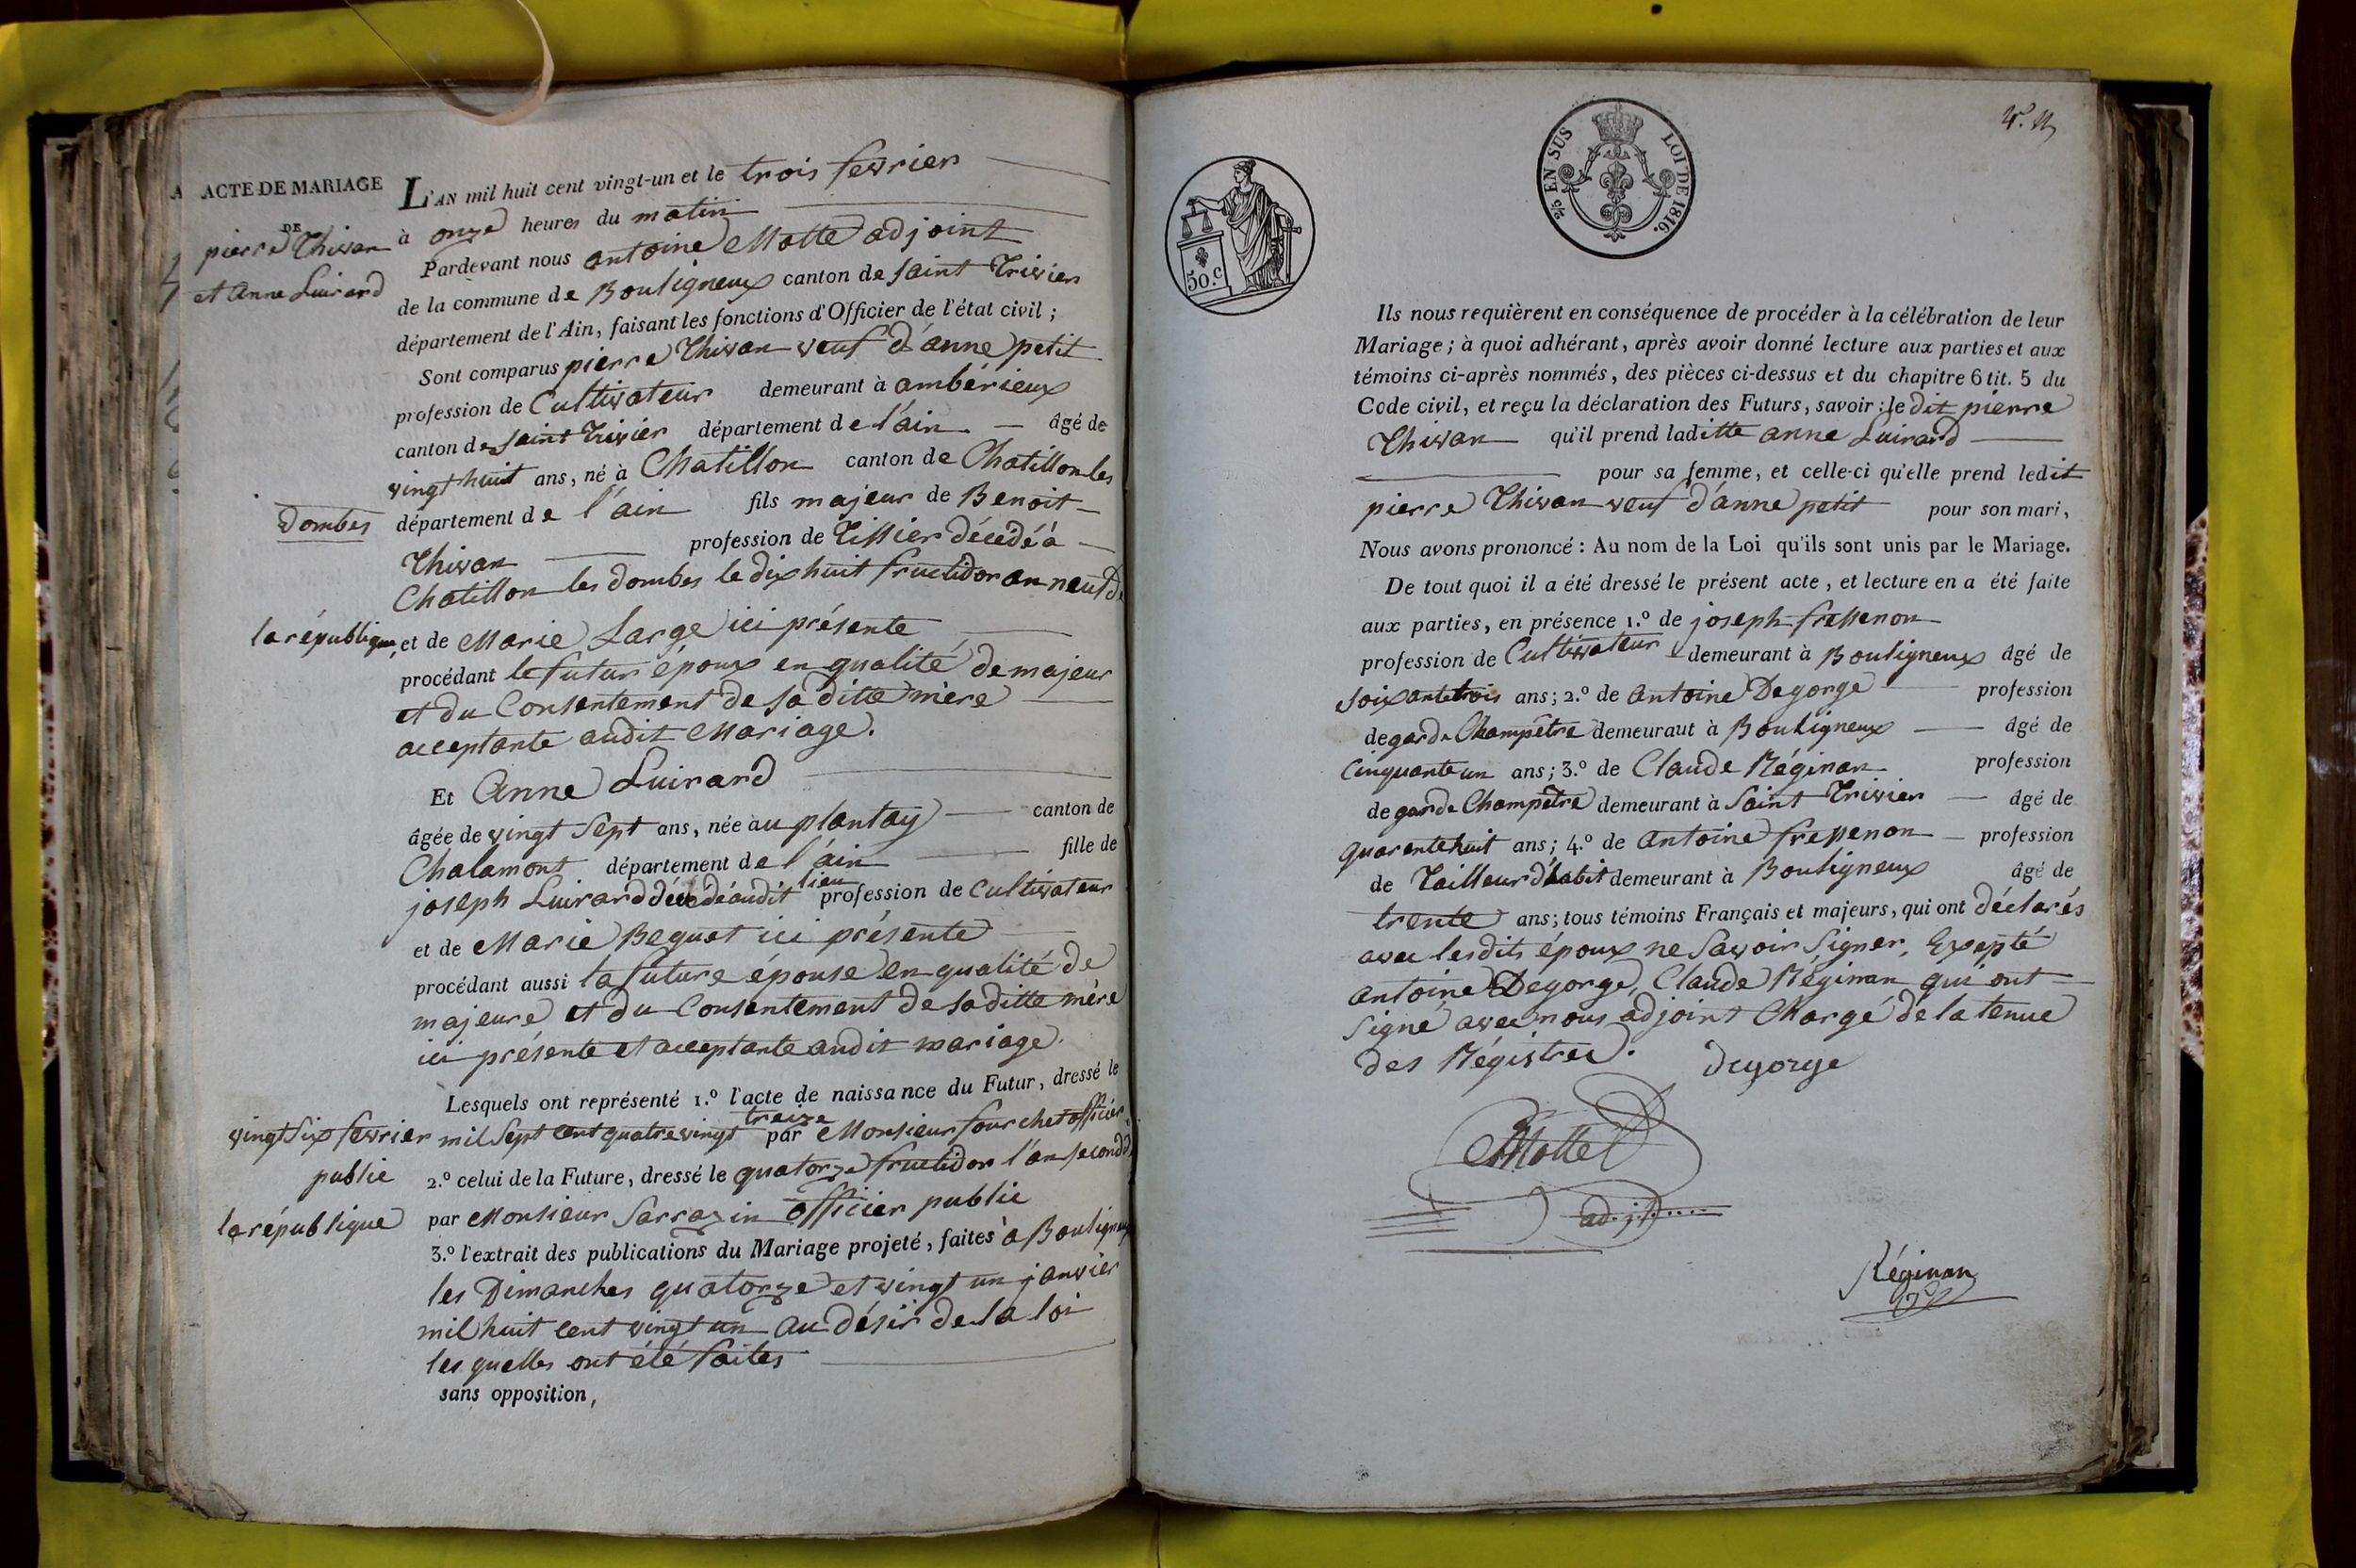 ACTE DE MARIAGE
DE
pierre Thivan
et Anne Luirard
L'AN mil huit cent vingt-un et le trois fevrier
à onze heures du matin
Pardevant nous antoine Motte adjoint
de la commune de Bouligneux canton de saint Trivier
département de l'Ain, faisant les fonctions d'Officier de l'état civil ;
Sont comparus pierre Thivan veuf d'anne petit
profession de Cultivateur demeurant à ambérieux
canton de saint Trivier département de l'ain âgé de
vingt huit ans, né à Chatillon canton de Chatillon les
Dombes département de l'ain fils majeur de Benoit
Thivan profession de Tissier décédé à
Chatillon les dombes le dix huit fructidor an neuf de
la république, et de Marie Large ici présente
procédant le futur époux en qualité de majeur
et du Consentement de sa ditte mère
acceptante audit Mariage.
Et Anne Luirard
âgée de vingt sept ans, née au plantay canton de
Chalamont département de l'ain fille de
joseph Luirard décédé audit lieu profession de Cultivateur
et de Marie Beguet ici présente
procédant aussi la future épouse en qualité de
majeure et du Consentement de sa ditte mère
ici présente et acceptante audit mariage.
Lesquels ont représenté 1.º l'acte de naissance du Futur, dressé le
vingt six fevrier mil sept cent quatre vingt treize par Monsieur fourchet officier
public 2.º celui de la Future, dressé le quatorze fructidor l'an second de
la république par Monsieur Sarrazin officier public
3.º l'extrait des publications du Mariage projeté, faites à Bouligneux
les Dimanches quatorze et vingt un janvier
mil huit cent vingt un au désir de la loi
les quelles ont été faites
sans opposition,
2/5 EN SUS LOI DE 1816.
50.c
Ils nous requièrent en conséquence de procéder à la célébration de leur
Mariage ; à quoi adhérant, après avoir donné lecture aux parties et aux
témoins ci-après nommés, des pièces ci-dessus et du chapitre 6 tit. 5 du
Code civil, et reçu la déclaration des Futurs, savoir : le dit pierre
Thivan qu'il prend laditte anne Luirard
pour sa femme, et celle-ci qu'elle prend ledit
pierre Thivan veuf d'anne petit pour son mari,
Nous avons prononcé : Au nom de la Loi qu'ils sont unis par le Mariage.
De tout quoi il a été dressé le présent acte, et lecture en a été faite
aux parties, en présence 1.º de joseph fressenon
profession de Cultivateur demeurant à Bouligneux âgé de
soixante trois ans ; 2.º de Antoine Degorge profession
de garde Champêtre demeuraut à Bouligneux âgé de
Cinquante un ans ; 3.º de Claude Réginan profession
de garde Champêtre demeurant à Saint Trivier âgé de
quarente huit ans ; 4.º de Antoine fressenon profession
de Tailleur d'habit demeurant à Bouligneux âgé de
trente ans ; tous témoins Français et majeurs, qui ont déclarés
avec les dits époux ne Savoir Signer, Exepté
antoine Degorge, Claude Réginan qui ont
Signé avec nous adjoint Chargé de la tenue
des Régistres.
degorge
Motte
adjt
Réginan